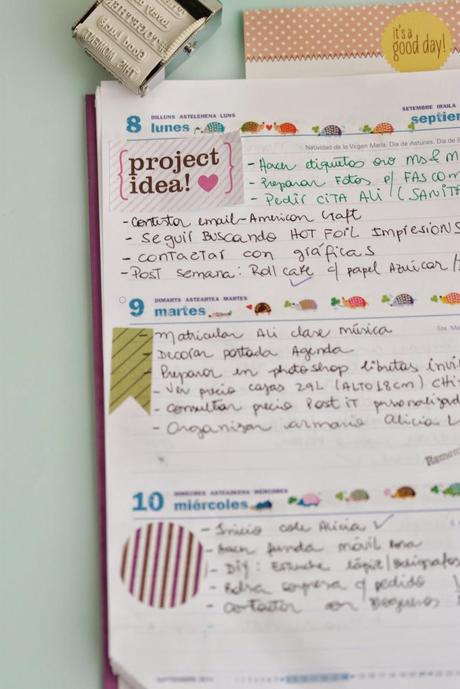 it's a
good day!
8 DILLUNS ASTELEHENA LUNS
lunes
SETEMBRE IRAILA
septiem
Natividad de la Virgen María, Día de Asturias, Día de
project
idea!
- Hacer etiquetas
- Preparar Fotos p/ FAS COM
- Pedir CITA Ali (SANIT
- Contestar email - American Craft
- Seguir BUSCANDO HOT FOIL IMPRESIONS
- contactar con gráficas
- Post semana: Roll cake c/ papel Azúcar/
9 DIMARTS ASTEARTEA MARTES
martes
- Matricular Ali clase música
- Decorar portada Agenda
- Preparar en photoshop libretas invi
- Ver precio cajas 29L (ALTO 18cm)
- Consultar precio Post iT personalizad
- Organizar armario Alicia
10 DIMECRES ASTEAZKENA MERCORES
miércoles
- Inicio cole Alicia ✓
- Hacer funda móvil Rosa
- DIY: Estuche lápiz/Bolígrafos
- Bolsa sorpresa c/ pedido
- Contactar con Blogueras